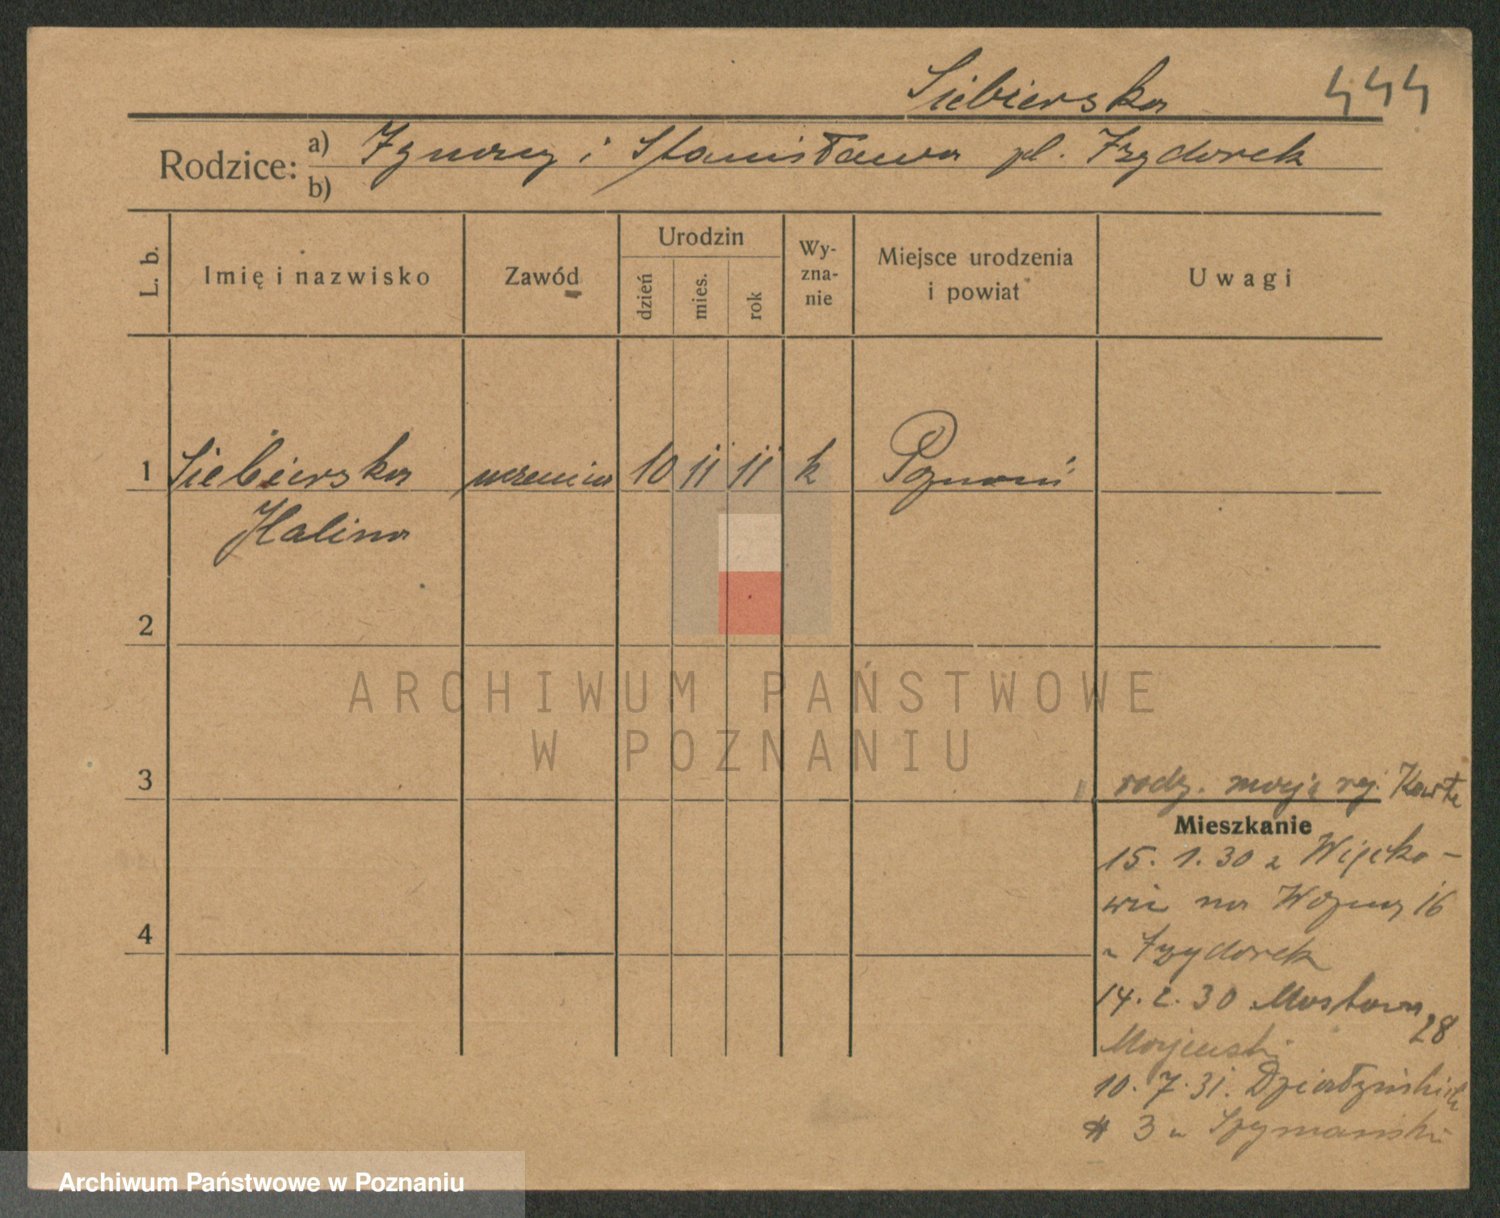 Siebierska 444
Rodzice: a) Ignacy i Stanisława pl. Izydorek
b)
L. b. Imię i nazwisko Zawód Urodzin dzień mies. rok Wy-zna-nie Miejsce urodzenia i powiat Uwagi
1 Siebierska uczenica 10 11 11 k Poznań
Halina
2
ARCHIWUM PAŃSTWOWE
W POZNANIU
3
rodz. mają rej. Kartę
Mieszkanie
15. 1. 30 z Więcko-
wic na Woźną 16
u Izydorek
4
14. 2. 30 Mostowa 28
Majewski
10. 7. 31. Działyńskich
3 u Szymański
Archiwum Państwowe w Poznaniu